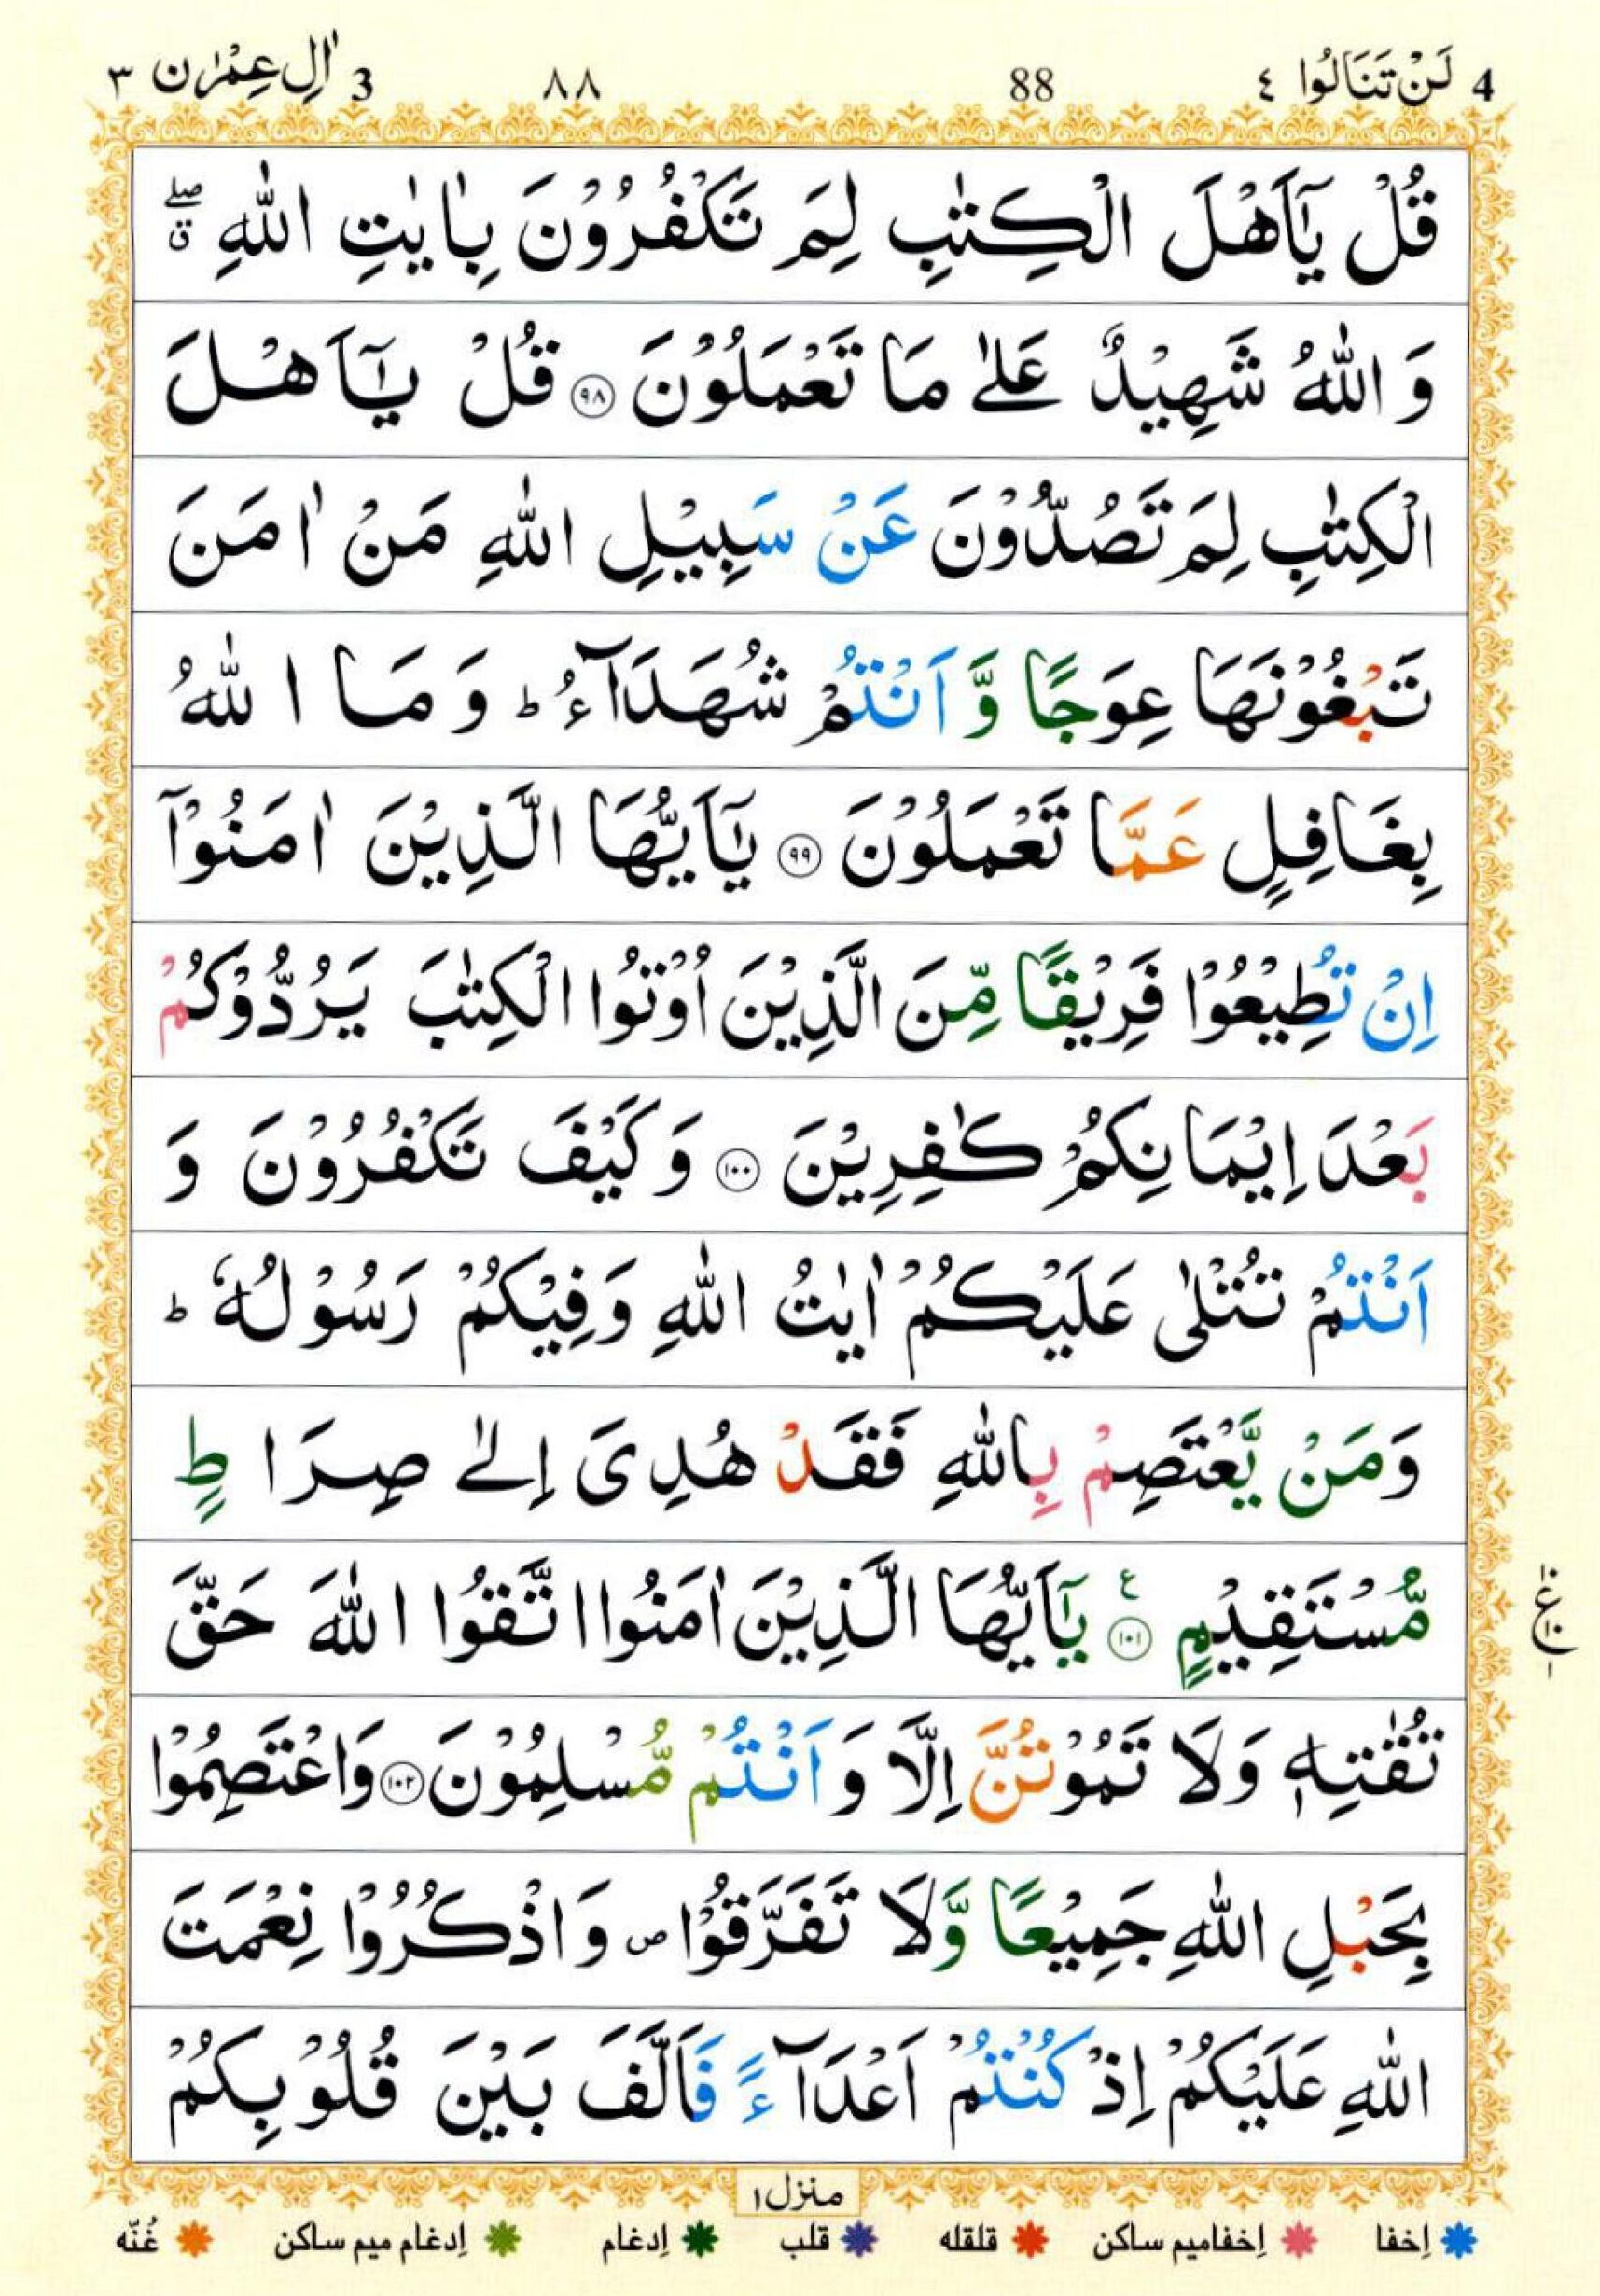 4 لَنْ تَنَالُوا ٤ 88 ٨٨ 3 اٰلِ عِمْرٰن ٣
قُلْ يٰۤاَهْلَ الْكِتٰبِ لِمَ تَكْفُرُوْنَ بِاٰيٰتِ اللّٰهِ ۖۗ
وَ اللّٰهُ شَهِيْدٌ عَلٰى مَا تَعْمَلُوْنَ ﴿٩٨﴾ قُلْ يٰۤاَهْلَ
الْكِتٰبِ لِمَ تَصُدُّوْنَ عَنْ سَبِيْلِ اللّٰهِ مَنْ اٰمَنَ
تَبْغُوْنَهَا عِوَجًا وَّ اَنْتُمْ شُهَدَآءُ ؕ وَ مَا اللّٰهُ
بِغَافِلٍ عَمَّا تَعْمَلُوْنَ ﴿٩٩﴾ يٰۤاَيُّهَا الَّذِيْنَ اٰمَنُوْۤا
اِنْ تُطِيْعُوْا فَرِيْقًا مِّنَ الَّذِيْنَ اُوْتُوا الْكِتٰبَ يَرُدُّوْكُمْ
بَعْدَ اِيْمَانِكُمْ كٰفِرِيْنَ ﴿١٠٠﴾ وَكَيْفَ تَكْفُرُوْنَ وَ
اَنْتُمْ تُتْلٰى عَلَيْكُمْ اٰيٰتُ اللّٰهِ وَفِيْكُمْ رَسُوْلُهٗ ؕ
وَمَنْ يَّعْتَصِمْ بِاللّٰهِ فَقَدْ هُدِىَ اِلٰى صِرَاطٍ
مُّسْتَقِيْمٍ ﴿١٠١﴾ ع يٰۤاَيُّهَا الَّذِيْنَ اٰمَنُوا اتَّقُوا اللّٰهَ حَقَّ
تُقٰتِهٖ وَلَا تَمُوْتُنَّ اِلَّا وَاَنْتُمْ مُّسْلِمُوْنَ ﴿١٠٢﴾ وَاعْتَصِمُوْا
بِحَبْلِ اللّٰهِ جَمِيْعًا وَّلَا تَفَرَّقُوْا ص وَاذْكُرُوْا نِعْمَتَ
اللّٰهِ عَلَيْكُمْ اِذْ كُنْتُمْ اَعْدَآءً فَاَلَّفَ بَيْنَ قُلُوْبِكُمْ
منزل ١
اِخفا اِخفامیم ساکن قلقله قلب اِدغام اِدغام میم ساکن غُنّه